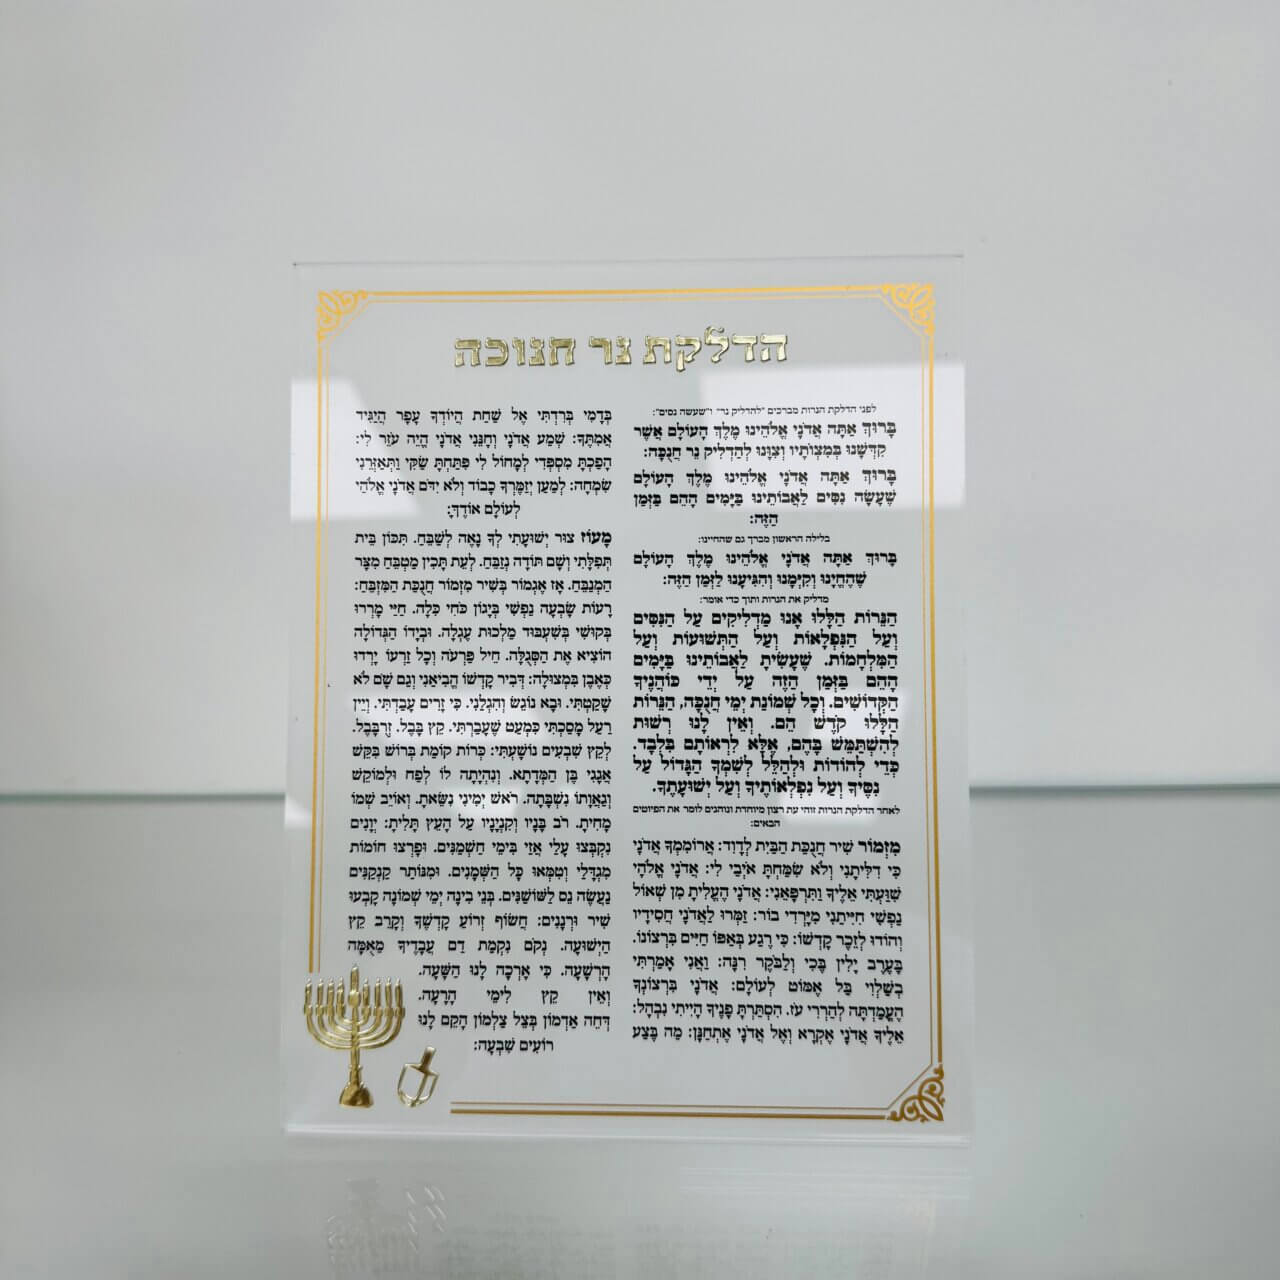 הדלקת נר חנוכה
לפני הדלקת הנרות מברכים "להדליק נר" ו"שעשה נסים":
בָּרוּךְ אַתָּה אֲדֹנָי אֱלֹהֵינוּ מֶלֶךְ הָעוֹלָם אֲשֶׁר
קִדְּשָׁנוּ בְּמִצְוֹתָיו וְצִוָּנוּ לְהַדְלִיק נֵר חֲנֻכָּה:
בָּרוּךְ אַתָּה אֲדֹנָי אֱלֹהֵינוּ מֶלֶךְ הָעוֹלָם
שֶׁעָשָׂה נִסִּים לַאֲבוֹתֵינוּ בַּיָּמִים הָהֵם בַּזְּמַן
הַזֶּה:
בלילה הראשון מברך גם שהחיינו:
בָּרוּךְ אַתָּה אֲדֹנָי אֱלֹהֵינוּ מֶלֶךְ הָעוֹלָם
שֶׁהֶחֱיָנוּ וְקִיְּמָנוּ וְהִגִּיעָנוּ לַזְּמַן הַזֶּה:
מדליק את הנרות ותוך כדי אומר:
הַנֵּרוֹת הַלָּלוּ אָנוּ מַדְלִיקִים עַל הַנִּסִּים
וְעַל הַנִּפְלָאוֹת וְעַל הַתְּשׁוּעוֹת וְעַל
הַמִּלְחָמוֹת. שֶׁעָשִׂיתָ לַאֲבוֹתֵינוּ בַּיָּמִים
הָהֵם בַּזְּמַן הַזֶּה עַל יְדֵי כּוֹהֲנֶיךָ
הַקְּדוֹשִׁים. וְכָל שְׁמוֹנַת יְמֵי חֲנֻכָּה, הַנֵּרוֹת
הַלָּלוּ קֹדֶשׁ הֵם. וְאֵין לָנוּ רְשׁוּת
לְהִשְׁתַּמֵּשׁ בָּהֶם, אֶלָּא לִרְאוֹתָם בִּלְבָד.
כְּדֵי לְהוֹדוֹת וּלְהַלֵּל לְשִׁמְךָ הַגָּדוֹל עַל
נִסֶּיךָ וְעַל נִפְלְאוֹתֶיךָ וְעַל יְשׁוּעָתֶךָ.
לאחר הדלקת הנרות זוהי עת רצון מיוחדת ונוהגים לומר את הפיוטים
הבאים:
מִזְמוֹר שִׁיר חֲנֻכַּת הַבַּיִת לְדָוִד: אֲרוֹמִמְךָ אֲדֹנָי
כִּי דִלִּיתָנִי וְלֹא שִׂמַּחְתָּ אֹיְבַי לִי: אֲדֹנָי אֱלֹהָי
שִׁוַּעְתִּי אֵלֶיךָ וַתִּרְפָּאֵנִי: אֲדֹנָי הֶעֱלִיתָ מִן שְׁאוֹל
נַפְשִׁי חִיִּיתַנִי מִיָּרְדִי בוֹר: זַמְּרוּ לַאֲדֹנָי חֲסִידָיו
וְהוֹדוּ לְזֵכֶר קָדְשׁוֹ: כִּי רֶגַע בְּאַפּוֹ חַיִּים בִּרְצוֹנוֹ.
בָּעֶרֶב יָלִין בֶּכִי וְלַבֹּקֶר רִנָּה: וַאֲנִי אָמַרְתִּי
בְשַׁלְוִי בַּל אֶמּוֹט לְעוֹלָם: אֲדֹנָי בִּרְצוֹנְךָ
הֶעֱמַדְתָּה לְהַרְרִי עֹז. הִסְתַּרְתָּ פָנֶיךָ הָיִיתִי נִבְהָל:
אֵלֶיךָ אֲדֹנָי אֶקְרָא וְאֶל אֲדֹנָי אֶתְחַנָּן: מַה בֶּצַע
בְּדָמִי בְּרִדְתִּי אֶל שַׁחַת הֲיוֹדְךָ עָפָר הֲיַגִּיד
אֲמִתֶּךָ: שְׁמַע אֲדֹנָי וְחָנֵּנִי אֲדֹנָי הֱיֵה עֹזֵר לִי:
הָפַכְתָּ מִסְפְּדִי לְמָחוֹל לִי פִּתַּחְתָּ שַׂקִּי וַתְּאַזְּרֵנִי
שִׂמְחָה: לְמַעַן יְזַמֶּרְךָ כָבוֹד וְלֹא יִדֹּם אֲדֹנָי אֱלֹהַי
לְעוֹלָם אוֹדֶךָּ:
מָעוֹז צוּר יְשׁוּעָתִי לְךָ נָאֶה לְשַׁבֵּחַ. תִּכּוֹן בֵּית
תְּפִלָּתִי וְשָׁם תּוֹדָה נְזַבֵּחַ. לְעֵת תָּכִין מַטְבֵּחַ מִצָּר
הַמְנַבֵּחַ. אָז אֶגְמוֹר בְּשִׁיר מִזְמוֹר חֲנֻכַּת הַמִּזְבֵּחַ:
רָעוֹת שָׂבְעָה נַפְשִׁי בְּיָגוֹן כֹּחִי כִּלָּה. חַיַּי מֵרְרוּ
בְּקוּשִׁי בְּשִׁעְבּוּד מַלְכוּת עֶגְלָה. וּבְיָדוֹ הַגְּדוֹלָה
הוֹצִיא אֶת הַסְּגֻלָּה. חֵיל פַּרְעֹה וְכָל זַרְעוֹ יָרְדוּ
כְּאֶבֶן בִּמְצוּלָה: דְּבִיר קָדְשׁוֹ הֱבִיאַנִי וְגַם שָׁם לֹא
שָׁקַטְתִּי. וּבָא נוֹגֵשׂ וְהִגְלַנִי. כִּי זָרִים עָבַדְתִּי. וְיֵין
רַעַל מָסַכְתִּי כִּמְעַט שֶׁעָבַרְתִּי. קֵץ בָּבֶל. זְרֻבָּבֶל.
לְקֵץ שִׁבְעִים נוֹשָׁעְתִּי: כְּרוֹת קוֹמַת בְּרוֹשׁ בִּקֵּשׁ
אֲגָגִי בֶּן הַמְּדָתָא. וְנִהְיָתָה לוֹ לְפַח וּלְמוֹקֵשׁ
וְגַאֲוָתוֹ נִשְׁבָּתָה. רֹאשׁ יְמִינִי נִשֵּׂאתָ. וְאוֹיֵב שְׁמוֹ
מָחִיתָ. רֹב בָּנָיו וְקִנְיָנָיו עַל הָעֵץ תָּלִיתָ: יְוָנִים
נִקְבְּצוּ עָלַי אֲזַי בִּימֵי חַשְׁמַנִּים. וּפָרְצוּ חוֹמוֹת
מִגְדָּלַי וְטִמְּאוּ כָּל הַשְּׁמָנִים. וּמִנּוֹתַר קַנְקַנִּים
נַעֲשָׂה נֵס לַשּׁוֹשַׁנִּים. בְּנֵי בִינָה יְמֵי שְׁמוֹנָה קָבְעוּ
שִׁיר וּרְנָנִים: חֲשׂוֹף זְרוֹעַ קָדְשֶׁךָ וְקָרֵב קֵץ
הַיְשׁוּעָה. נְקֹם נִקְמַת דַּם עֲבָדֶיךָ מֵאֻמָּה
הָרְשָׁעָה. כִּי אָרְכָה לָנוּ הַשָּׁעָה.
וְאֵין קֵץ לִימֵי הָרָעָה.
דְּחֵה אַדְמוֹן בְּצֵל צַלְמוֹן הָקֵם לָנוּ
רוֹעִים שִׁבְעָה: